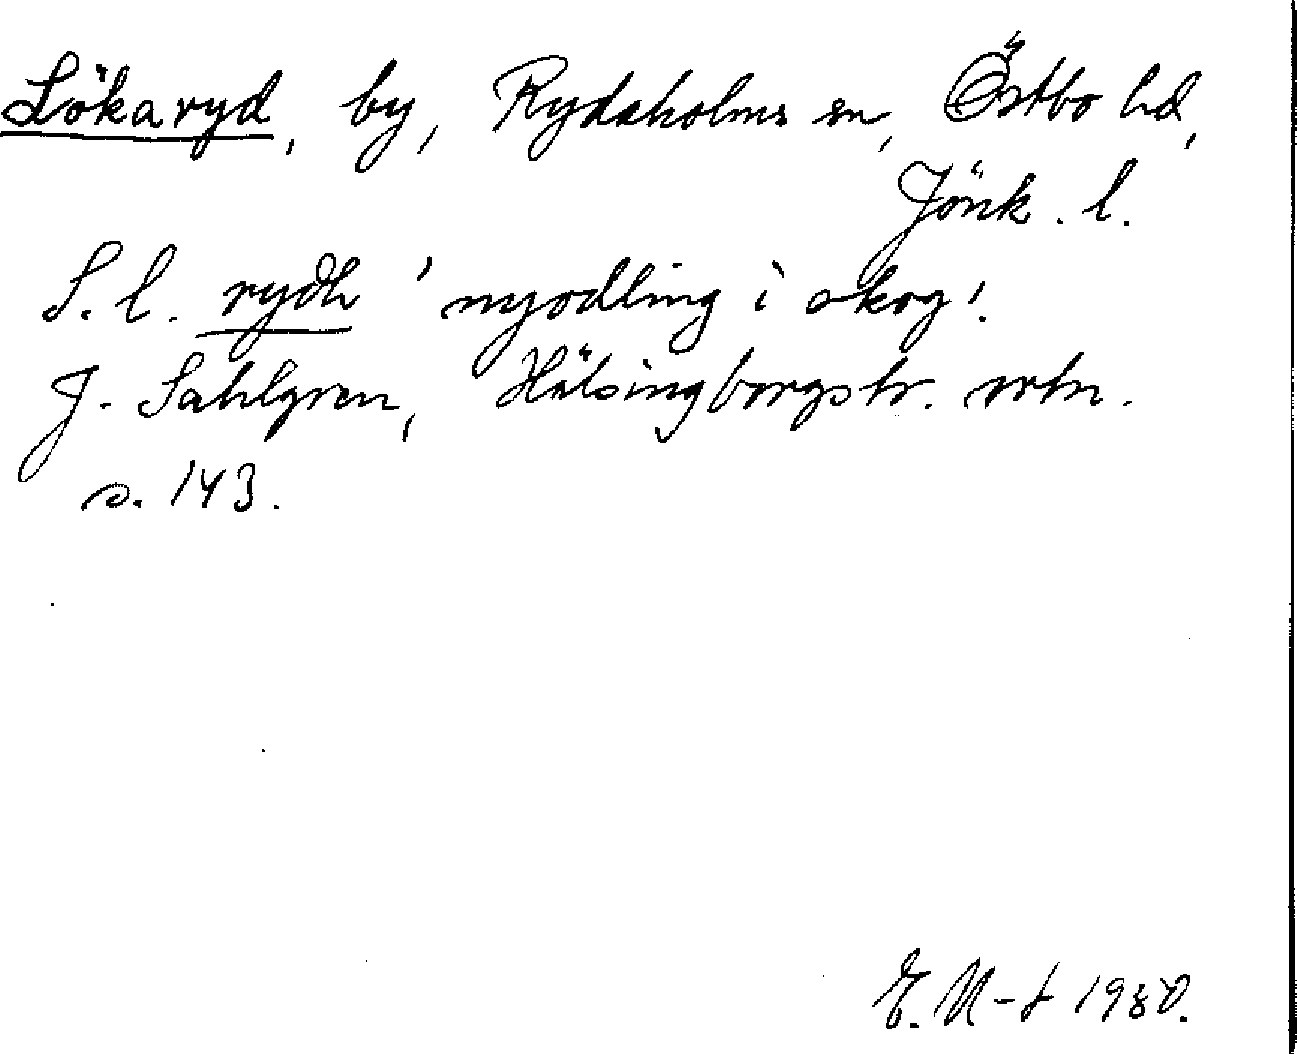 Lökaryd, by, Rydaholms sn, Östbo hd,
Jönk. l.
S. l. rydh 'nyodling i skog'.
J. Sahlgren, Hälsingborgstr. ortn.
s. 143.
E. N-t 1980.